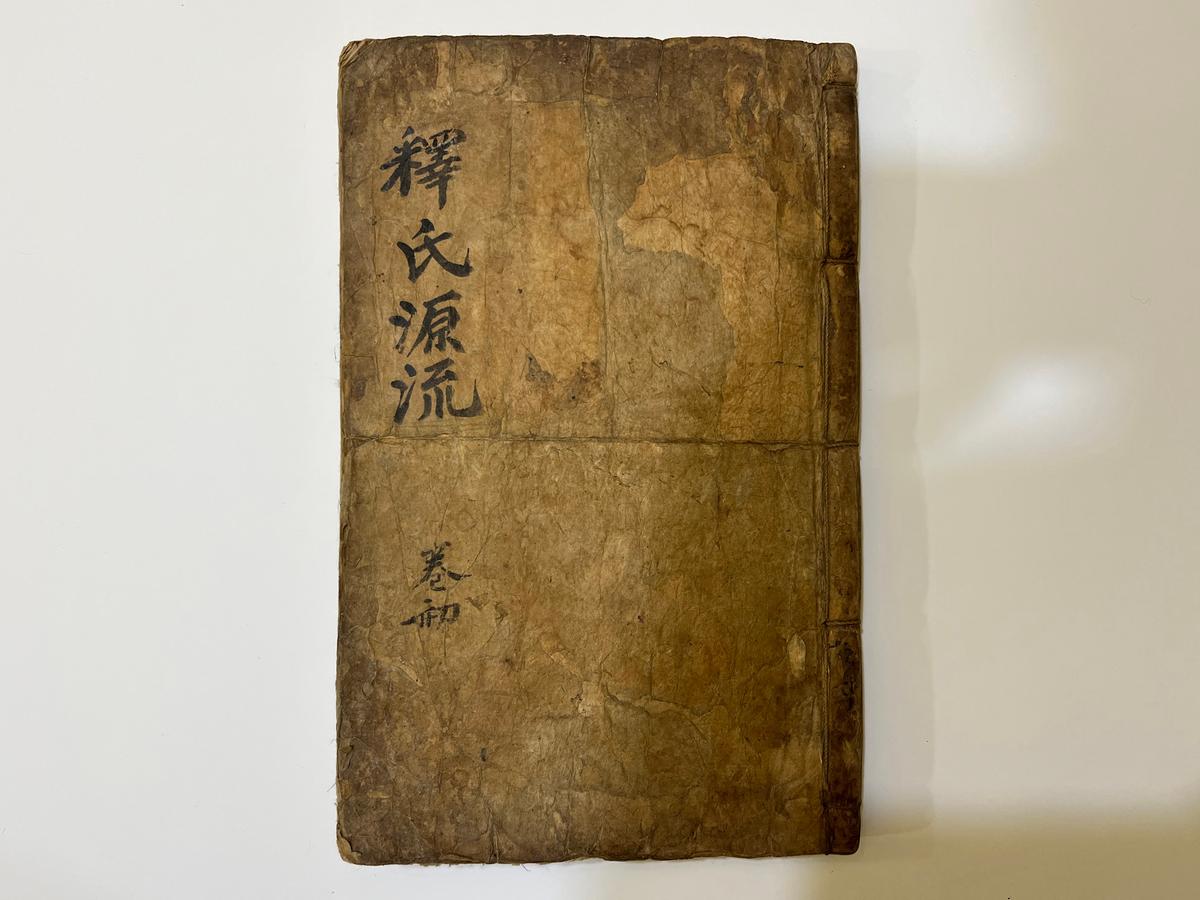 釋氏源流
卷初